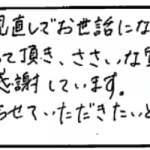 見直しでお世話にな
って頂き、ささいな
感謝しています。
らせていただきたいと